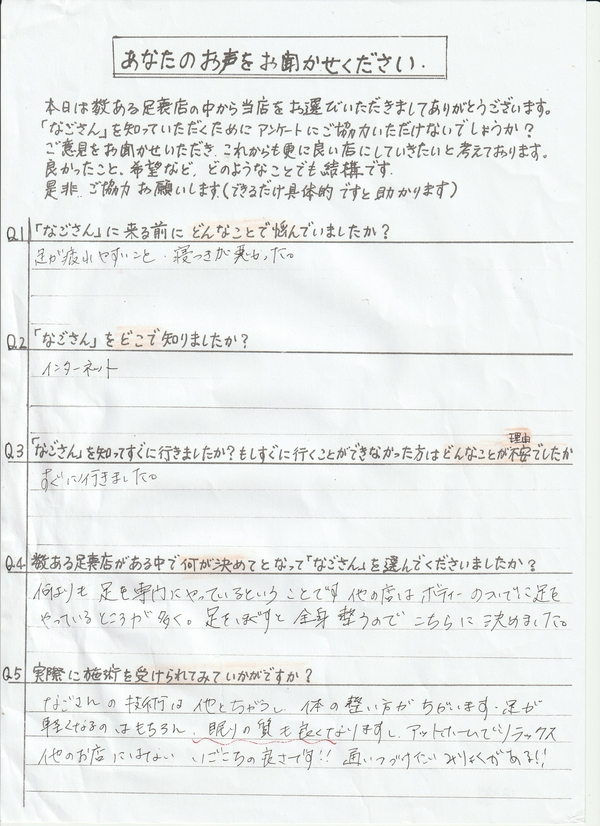 あなたのお声をお聞かせください.
本日は数ある足裏店の中から当店をお選びいただきましてありがとうございます。
「なごさん」を知っていただくためにアンケートにご協力いただけないでしょうか？
ご意見をお聞かせいただき、これからも更に良い店にしていきたいと考えております。
良かったこと、希望など、どのようなことでも結構です.
是非、ご協力お願いします.(できるだけ具体的ですと助かります)
Q1 「なごさん」に来る前にどんなことで悩んでいましたか？
足が疲れやすいこと・寝つきが悪かった。
Q2 「なごさん」をどこで知りましたか？
インターネット
理由
Q3 「なごさん」を知ってすぐに行きましたか？もしすぐに行くことができなかった方はどんなことが不安でしたか
すぐに行きました。
Q4 数ある足裏店がある中で何が決めてとなって「なごさん」を選んでくださいましたか？
何よりも足を専門にやっているということです 他の店はボディーのついでに足を
やっているところが多く。足をほぐすと全身整うのでこちらに決めました。
Q5 実際に施術を受けられてみていかがですか？
なごさんの技術は他とちがうし、体の整い方がちがいます・足が
軽くなるのはもちろん、眠りの質も良くなりますし、アットホームでリラックス
他のお店にはない いごこちの良さです!! 通いつづけたいみりょくがある!!